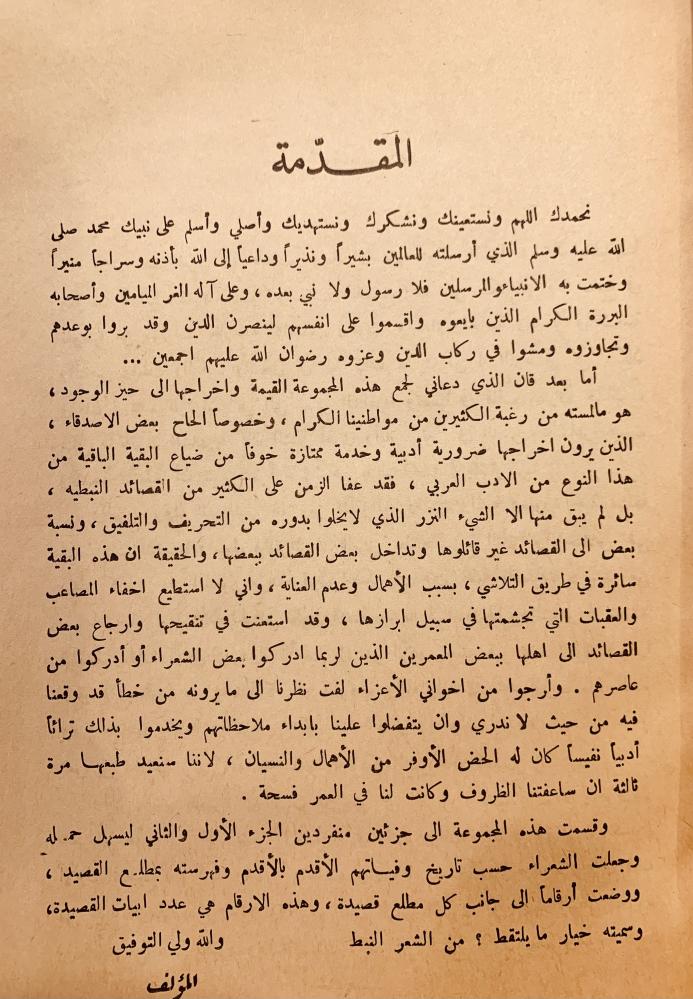 المقدّمة
نحمدك اللهم ونستعينك ونشكرك ونستهديك وأصلي وأسلم على نبيك محمد صلى
الله عليه وسلم الذي أرسلته للعالمين بشيراً ونذيراً وداعياً إلى الله بأذنه وسراجاً منيراً
وختمت به الانبياء والمرسلين فلا رسول ولا نبي بعده ، وعلى آله الغر الميامين وأصحابه
البررة الكرام الذين بايعوه واقسموا على انفسهم لينصرن الدين وقد بروا بوعدهم
وتجاوزوه ومشوا في ركاب الدين وعزوه رضوان الله عليهم اجمعين ...
أما بعد فان الذي دعاني لجمع هذه المجموعة القيمة واخراجها الى حيز الوجود ،
هو مالمسته من رغبة الكثيرين من مواطنينا الكرام ، وخصوصاً الحاح بعض الاصدقاء ،
الذين يرون اخراجها ضرورية أدبية وخدمة ممتازة خوفاً من ضياع البقية الباقية من
هذا النوع من الادب العربي ، فقد عفا الزمن على الكثير من القصائد النبطيه ،
بل لم يبق منها الا الشيء النزر الذي لايخلوا بدوره من التحريف والتلفيق ، ونسبة
بعض الى القصائد غير قائلوها وتداخل بعض القصائد ببعضها ، والحقيقة ان هذه البقية
سائرة في طريق التلاشي ، بسبب الأهمال وعدم العناية ، واني لا استطيع اخفاء المصاعب
والعقبات التي تجشمتها في سبيل ابرازها ، وقد استعنت في تنقيحها وارجاع بعض
القصائد الى اهلها ببعض المعمرين الذين لربما ادركوا بعض الشعراء أو أدركوا من
عاصرهم . وأرجوا من اخواني الأعزاء لفت نظرنا الى مايرونه من خطأ قد وقعنا
فيه من حيث لا ندري وان يتفضلوا علينا بابداء ملاحظاتهم ويخدموا بذالك تراثاً
أدبياً نفيساً كان له الحض الأوفر من الأهمال والنسيان ، لاننا سنعيد طبعها مرة
ثالثة ان ساعفتنا الظروف وكانت لنا في العمر فسحة .
وقسمت هذه المجموعة الى جزئين منفردين الجزء الأول والثاني ليسهل حمله
وجعلت الشعراء حسب تاريخ وفياتهم الأقدم بالأقدم وفهرسته بمطلع القصيد ،
ووضعت أرقاماً الى جانب كل مطلع قصيدة ، وهذه الارقام هي عدد ابيات القصيدة ،
وسميته خيار ما يلتقط ؟ من الشعر النبط والله ولي التوفيق
المؤلف